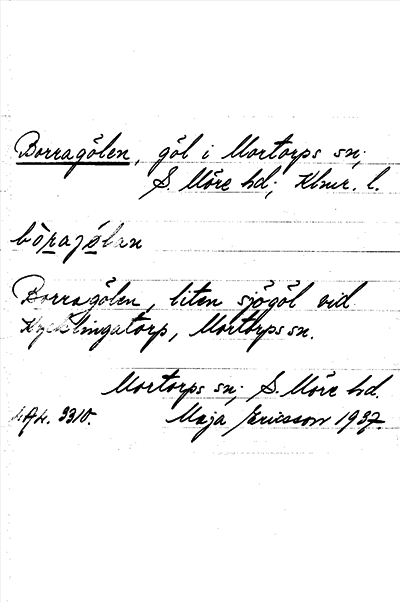 Borragölen, göl i Mortorps sn;
S. Möre hd; Klmr. l.
bòrajö́lan
Borragölen, liten sjögöl vid
Kycklingatorp, Mortorps sn.
Mortorps sn; S. Möre hd.
3310. Maja Ericsson 1937.